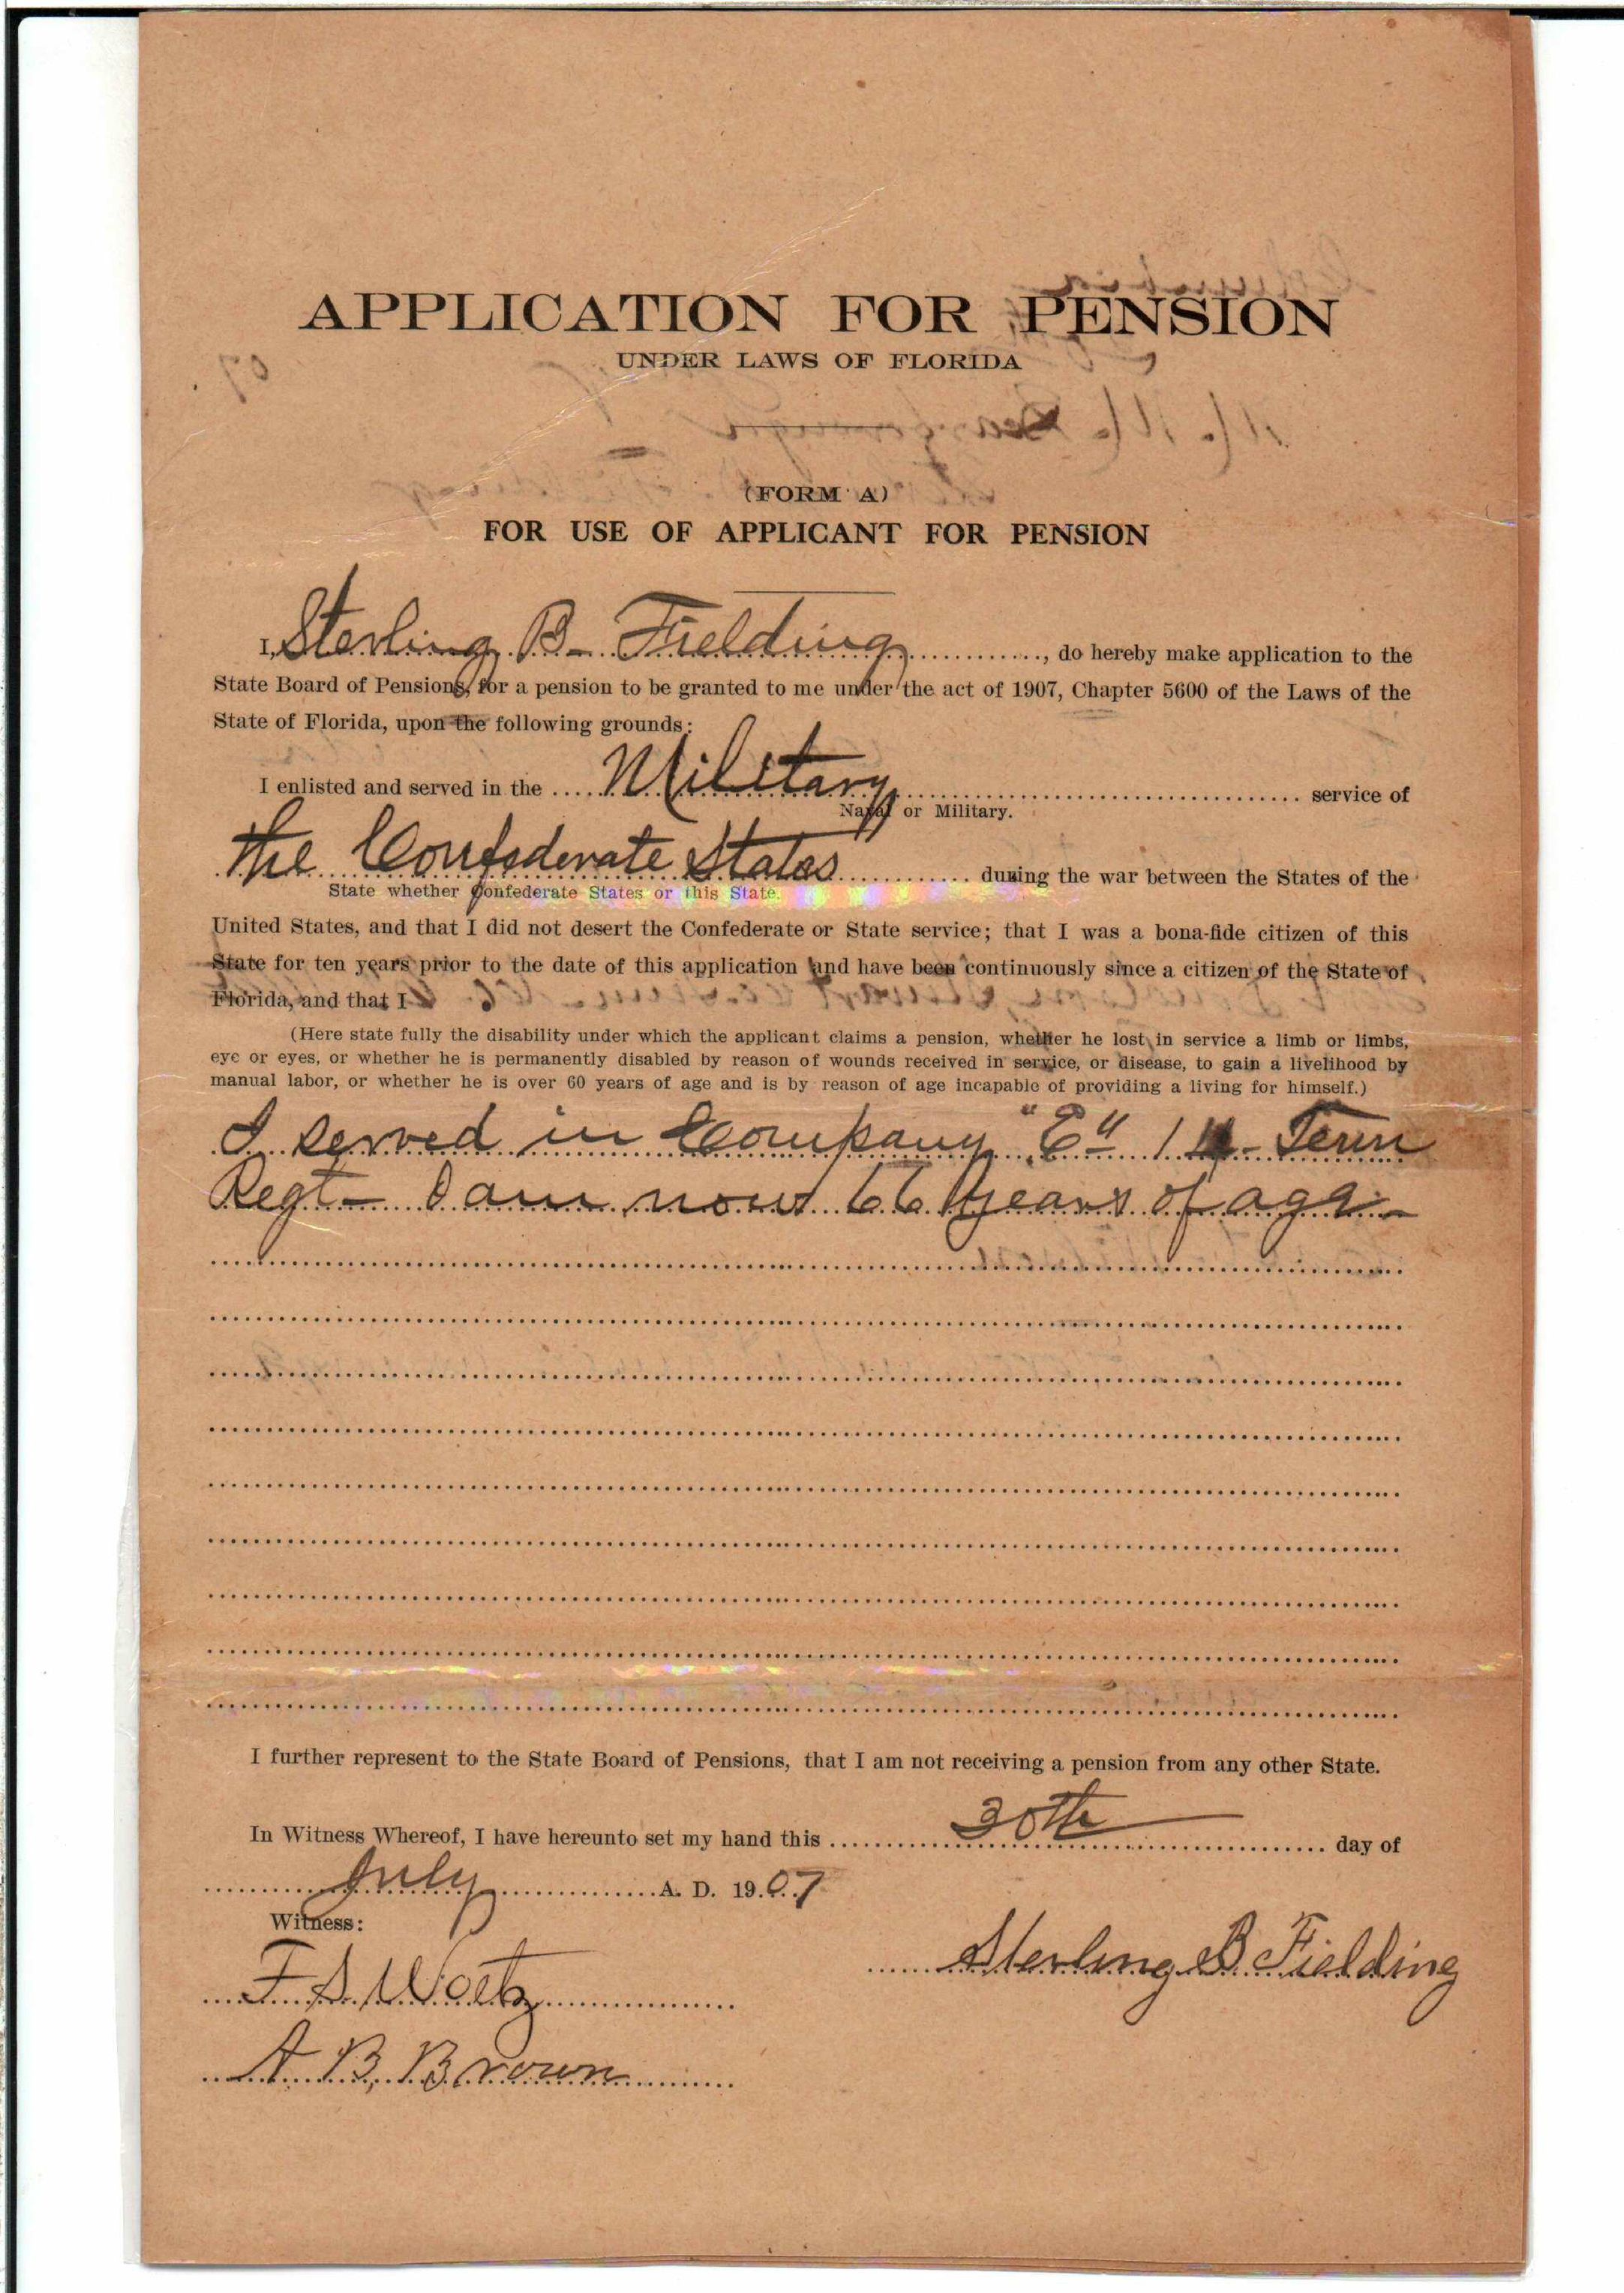 APPLICATION FOR PENSION
UNDER LAWS OF FLORIDA
(FORM A)
FOR USE OF APPLICANT FOR PENSION
I, Sterling B- Fielding, do hereby make application to the
State Board of Pensions, for a pension to be granted to me under the act of 1907, Chapter 5600 of the Laws of the
State of Florida, upon the following grounds:
I enlisted and served in the Military service of
Naval or Military.
The Confederate States during the war between the States of the
State whether Confederate States or this State.
United States, and that I did not desert the Confederate or State service; that I was a bona-fide citizen of this
State for ten years prior to the date of this application and have been continuously since a citizen of the State of
Florida, and that I
(Here state fully the disability under which the applicant claims a pension, whether he lost in service a limb or limbs,
eye or eyes, or whether he is permanently disabled by reason of wounds received in service, or disease, to gain a livelihood by
manual labor, or whether he is over 60 years of age and is by reason of age incapable of providing a living for himself.)
I served in Company "E" Tenn
Regt- I am now 66 years of age-
I further represent to the State Board of Pensions, that I am not receiving a pension from any other State.
In Witness Whereof, I have hereunto set my hand this 30th day of
July A. D. 1907
Witness:
Sterling B Fielding
F. S.
A. B. Brown